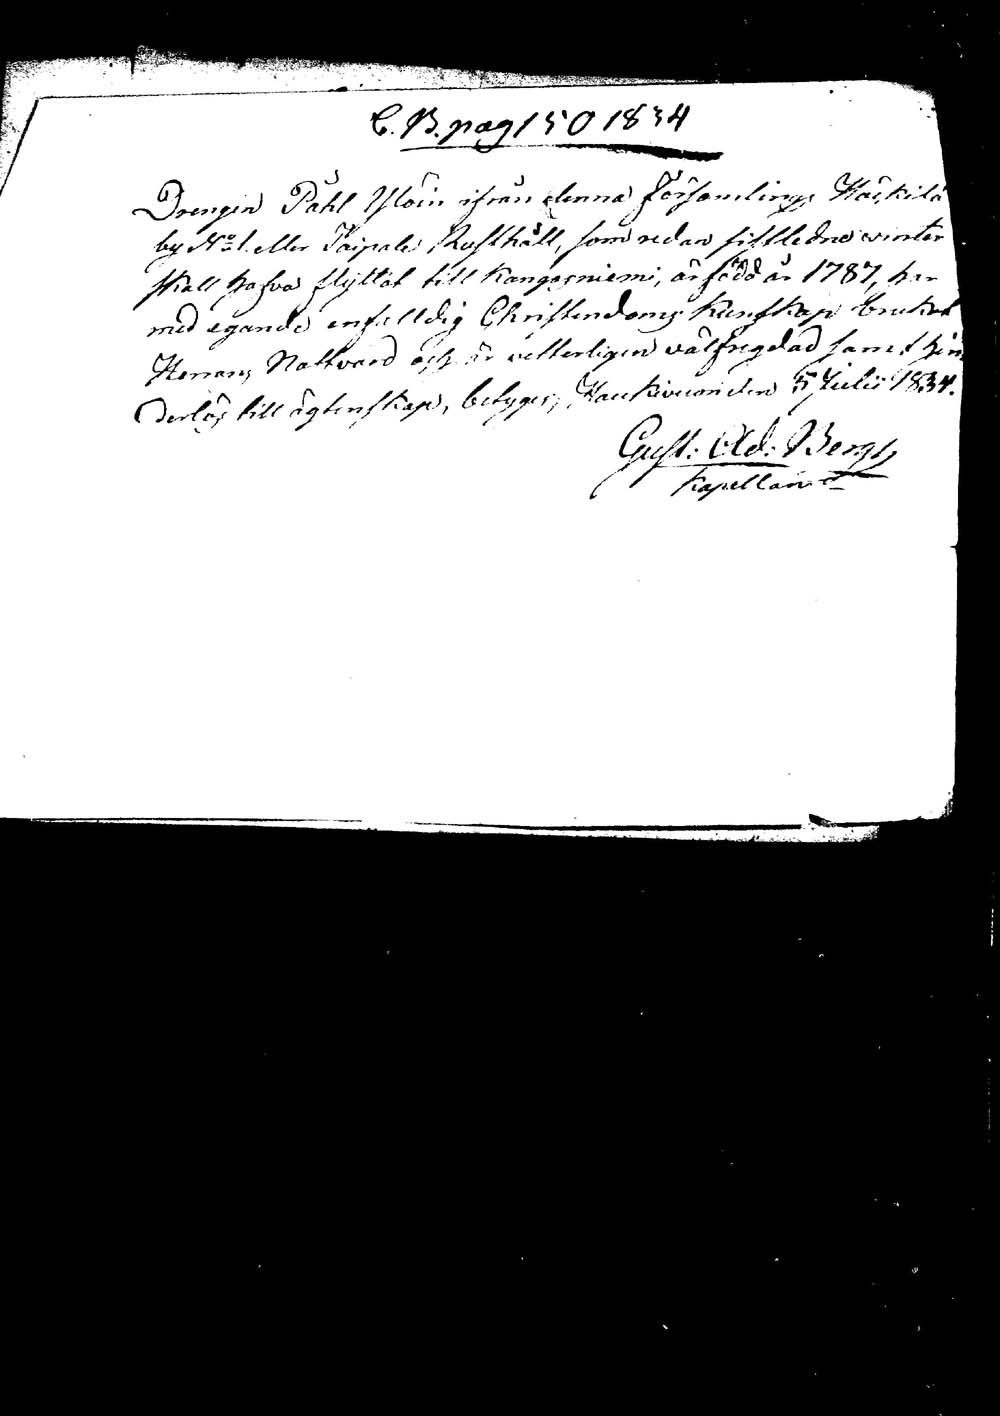 C. B. pag 150 1834
Drengen Påhl Ylöin ifrån denna Församlings Häkilä
by No 1. eller Taipale Rusthåll, som redan sistledne winter
skall hafva flyttat till Kangasniemi, är född år 1787, har
med egande enfalldig Christendoms Kunskap brukat
Herrans Nattvard och är vetterligen välfregdad samt hin
derlös till ägtenskap, betyges, Haukivuori den 5 Julii 1834.
Gust: Ad: Bergh
Kapellan